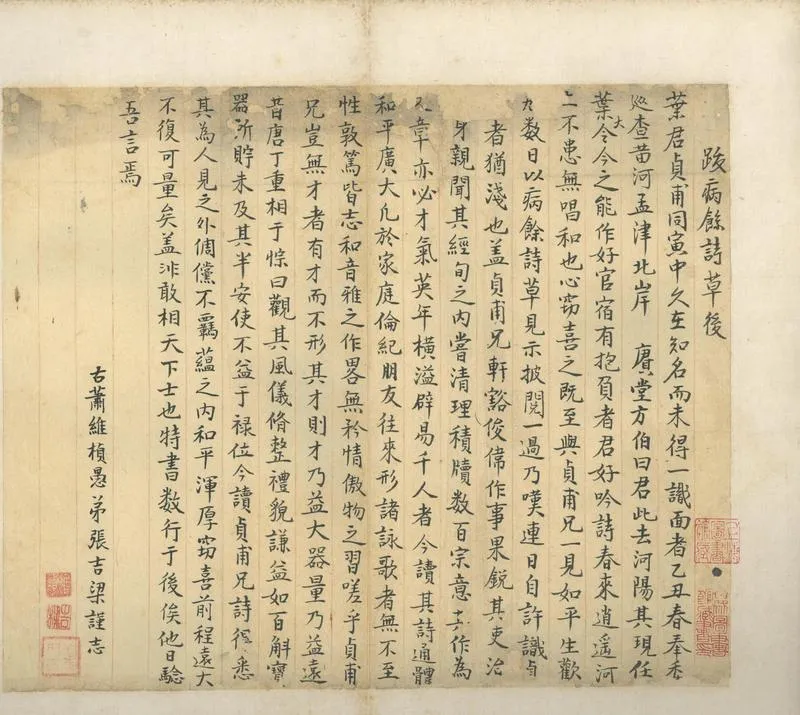 跋病餘詩草後
葉君貞甫同寅中久在知名而未得一識面者乙丑春奉委
巡查黃河孟津北岸 賡堂方伯曰君此去河陽其現任
葉大令今之能作好官宿有抱負者君好吟詩春來逍遙河
上不患無唱和也心竊喜之既至與貞甫兄一見如平生歡
数日以病餘詩草見示披閱一過乃嘆連日自許識貞
者猶淺也蓋貞甫兄軒豁俊偉作事果銳其吏治
身親聞其經旬之內嘗清理積牘数百宗意其作為
章亦必才氣英年橫溢辟易千人者今讀其詩通體
和平廣大凡於家庭倫紀朋友往來形諸詠歌者無不至
性敦篤皆志和音雅之作畧無矜情傲物之習嗟乎貞甫
兄豈無才者有才而不形其才則才乃益大器量乃益遠
昔唐丁重相于悰曰觀其風儀脩整禮貌謙益如百斛寶
器所貯未及其半安使不益于祿位今讀貞甫兄詩悉
其為人見之外倜儻不羈蘊之內和平渾厚竊喜前程遠大
不復可量矣蓋非敢相天下士也特書数行于後俟他日驗
吾言焉
古蕭維楨愚弟張吉梁謹志